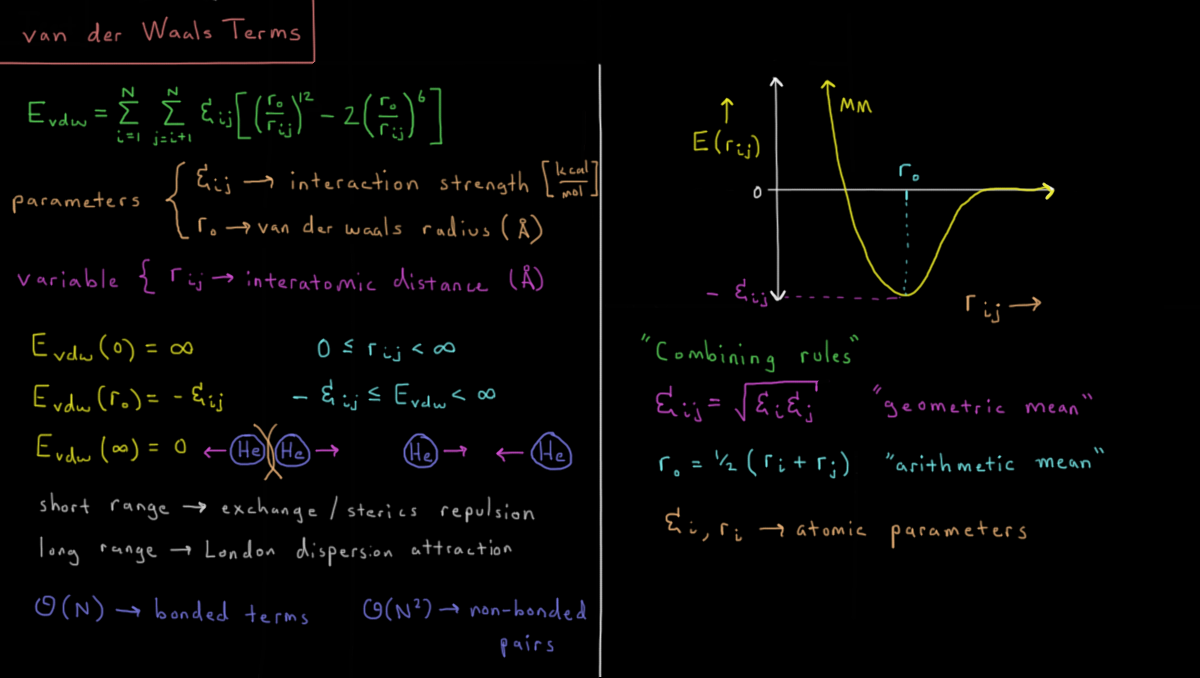 van der Waals Terms
E_vdw = Σ_{i=1}^{N} Σ_{j=i+1}^{N} ℰ_ij [ (r₀/r_ij)^12 − 2 (r₀/r_ij)^6 ]
parameters { ℰ_ij → interaction strength [kcal/mol]
r₀ → van der waals radius (Å)
variable { r_ij → interatomic distance (Å)
E_vdw(0) = ∞ 0 ≤ r_ij < ∞
E_vdw(r₀) = - ℰ_ij - ℰ_ij ≤ E_vdw < ∞
E_vdw(∞) = 0 ← He )( He → He → ← He
short range → exchange / sterics repulsion
long range → London dispersion attraction
O(N) → bonded terms O(N²) → non-bonded
pairs
MM
↑
E(r_ij)
r₀
0
- ℰ_ij
r_ij →
"Combining rules"
ℰ_ij = √(ℰ_i ℰ_j) "geometric mean"
r₀ = ½ (r_i + r_j) "arithmetic mean"
ℰ_i, r_i → atomic parameters